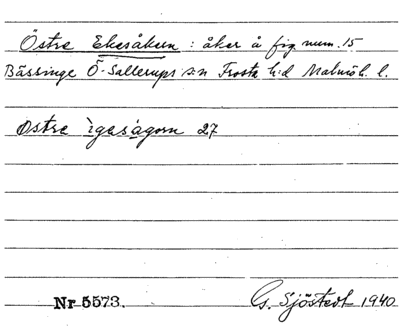 Östre Ekesåkern : åker å fig. num. 15
Bässinge Ö. Sallerups s:n Frosta h:d Malmöh. l.
östre ìgasàgorn 27
Nr 5573. G. Sjöstedt 1940